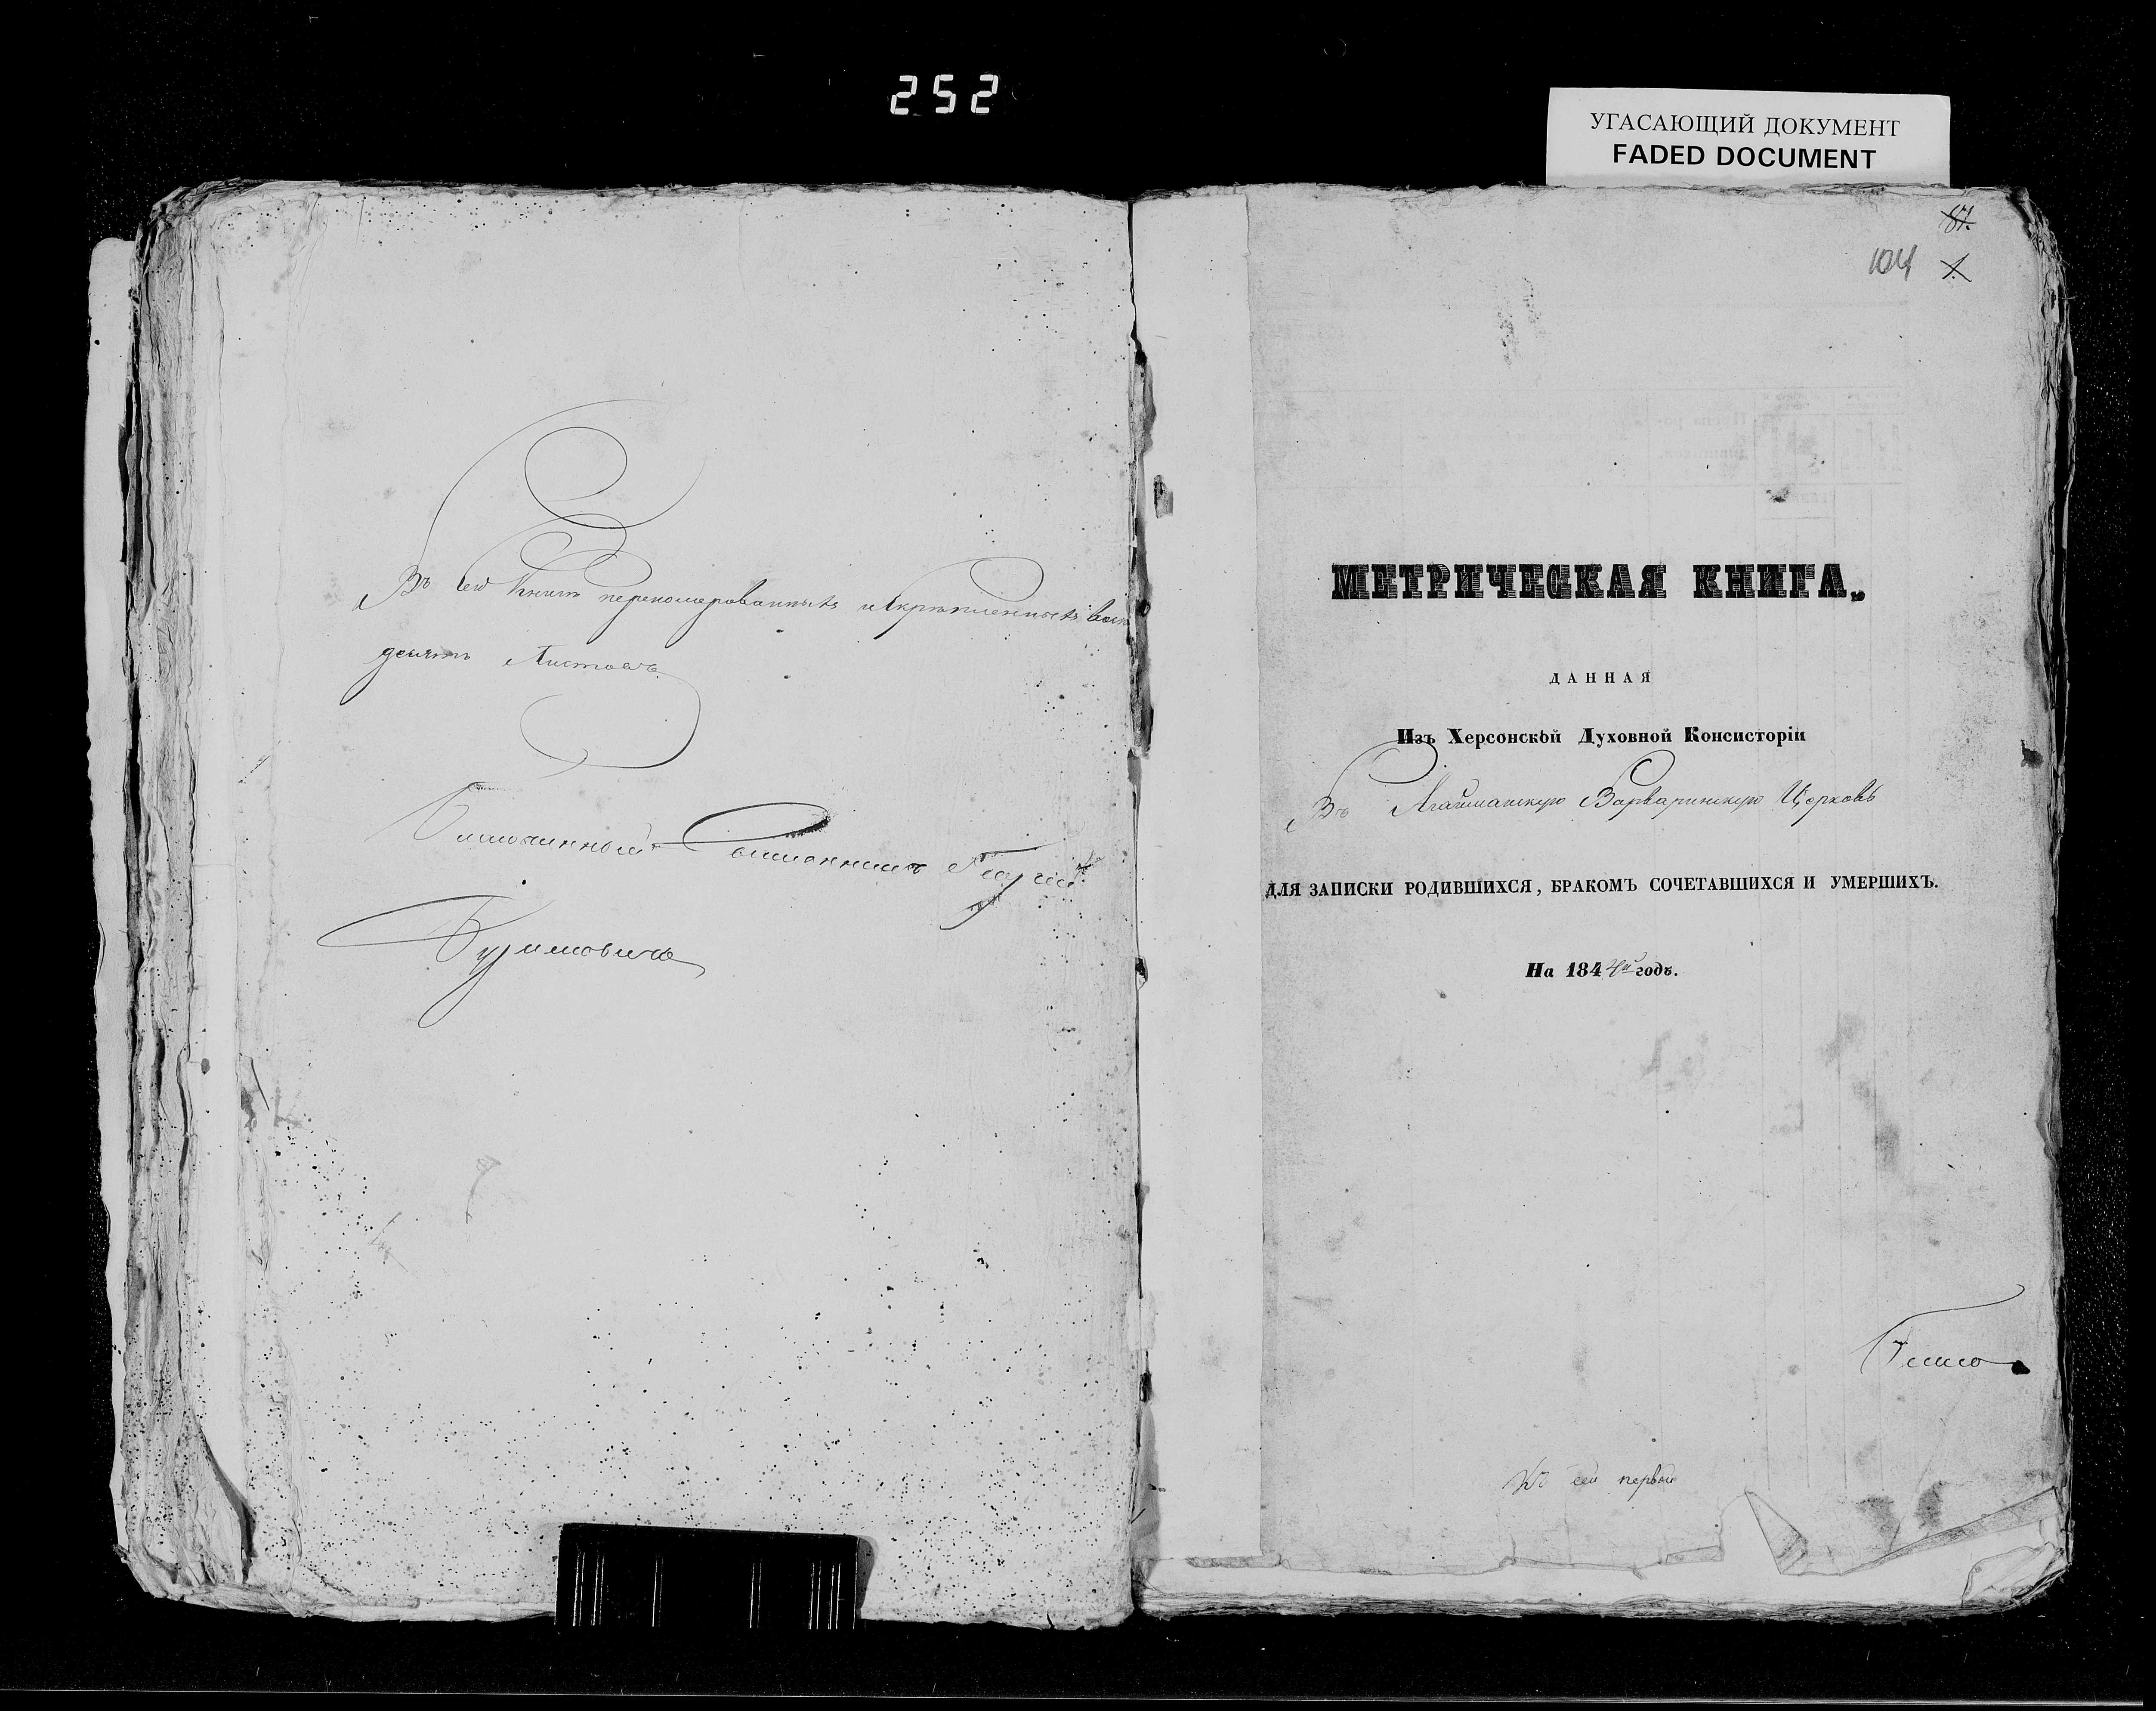 252
УГАСАЮЩИЙ ДОКУМЕНТ
FADED DOCUMENT
Въ сей Книгѣ перенумерованныхъ и скрѣпленныхъ
десять Листовъ
Благочинный Священникъ Георгій
Бузимовичъ
87.
104 1.
МЕТРИЧЕСКАЯ КНИГА,
ДАННАЯ
Изъ Херсонской Духовной Консисторіи
Въ Агайманскую Варваринскую Церковь
ДЛЯ ЗАПИСКИ РОДИВШИХСЯ, БРАКОМЪ СОЧЕТАВШИХСЯ И УМЕРШИХЪ.
На 1844й годъ.
Благо
Къ сей первый